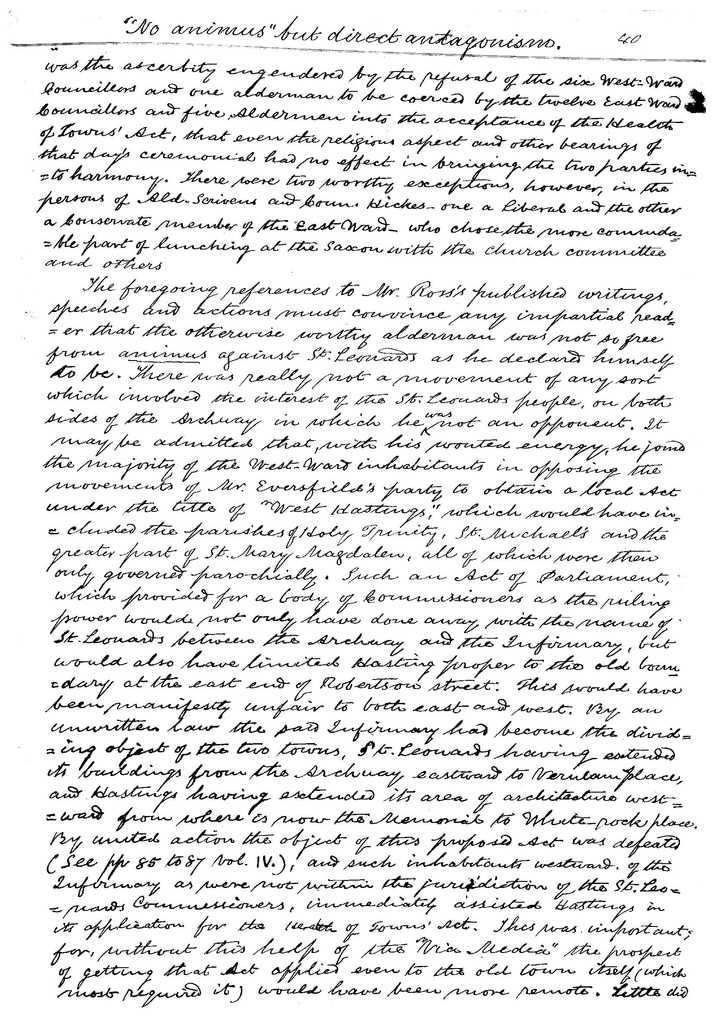 "No animus" but direct antagonism. 40
was the ascerbity engendered by the refusal of the six West-Ward
Councillors and one alderman to be coerced by the twelve East Ward
Councillors and five Aldermen into the acceptance of the Health
of Towns' Act, that even the religious aspect and other bearings of
that day's ceremonial had no effect in bringing the two parties in=
=to harmony. There were two worthy exceptions, however, in the
persons of Ald. Scrivens and Coun. Hickes - one a Liberal and the other
a Conservate member of the East Ward - who chose the more commda=
=ble part of lunching at the Saxon with the Church committee
and others
The foregoing references to Mr. Ross's published writings,
speeches and actions must convince any impartial read=
=er that the otherwise worthy alderman was not so free
from animus against St. Leonards as he declared himself
to be. There was really not a movement of any sort
which involved the interest of the St. Leonards people, on both
sides of the Archway in which he was not an opponent. It
may be admitted that, with his wonted energy, he joined
the majority of the West-Ward inhabitants in opposing the
movements of Mr. Eversfield's party to obtain a local Act
under the title of "West Hastings," which would have in=
=cluded the parishes of Holy Trinity, St. Michael's and the
greater part of St. Mary Magdalen, all of which were then
only governed parochially. Such an Act of Parliament,
which provided for a body of Commissioners as the ruling
power would not only have done away with the name of
St. Leonards between the Archway and the Infirmary, but
would also have limited Hasting proper to the old boun
=dary at the east end of Robertson street. This would have
been manifestly unfair to both east and west. By an
unwritten law the said Infirmary had become the divid=
=ing object of the two towns, St. Leonards having extended
its buildings from the Archway eastward to Verulam place,
and Hastings having extended its area of architecture west=
=ward from where is now the Memorial to White-rock place.
By united action the object of this proposed Act was defeated
(See pp 85 to 87 Vol. IV.), and such inhabitants westward of the
Infirmary as were not within the jurisdiction of the St. Leo=
=nards Commissioners, immediately assisted Hastings in
its application for the Health of Towns' Act. This was important;
for, without this help of the "Via Media" the prospect
of getting that Act applied even to the old town itself (which
most required it) would have been more remote. Little did